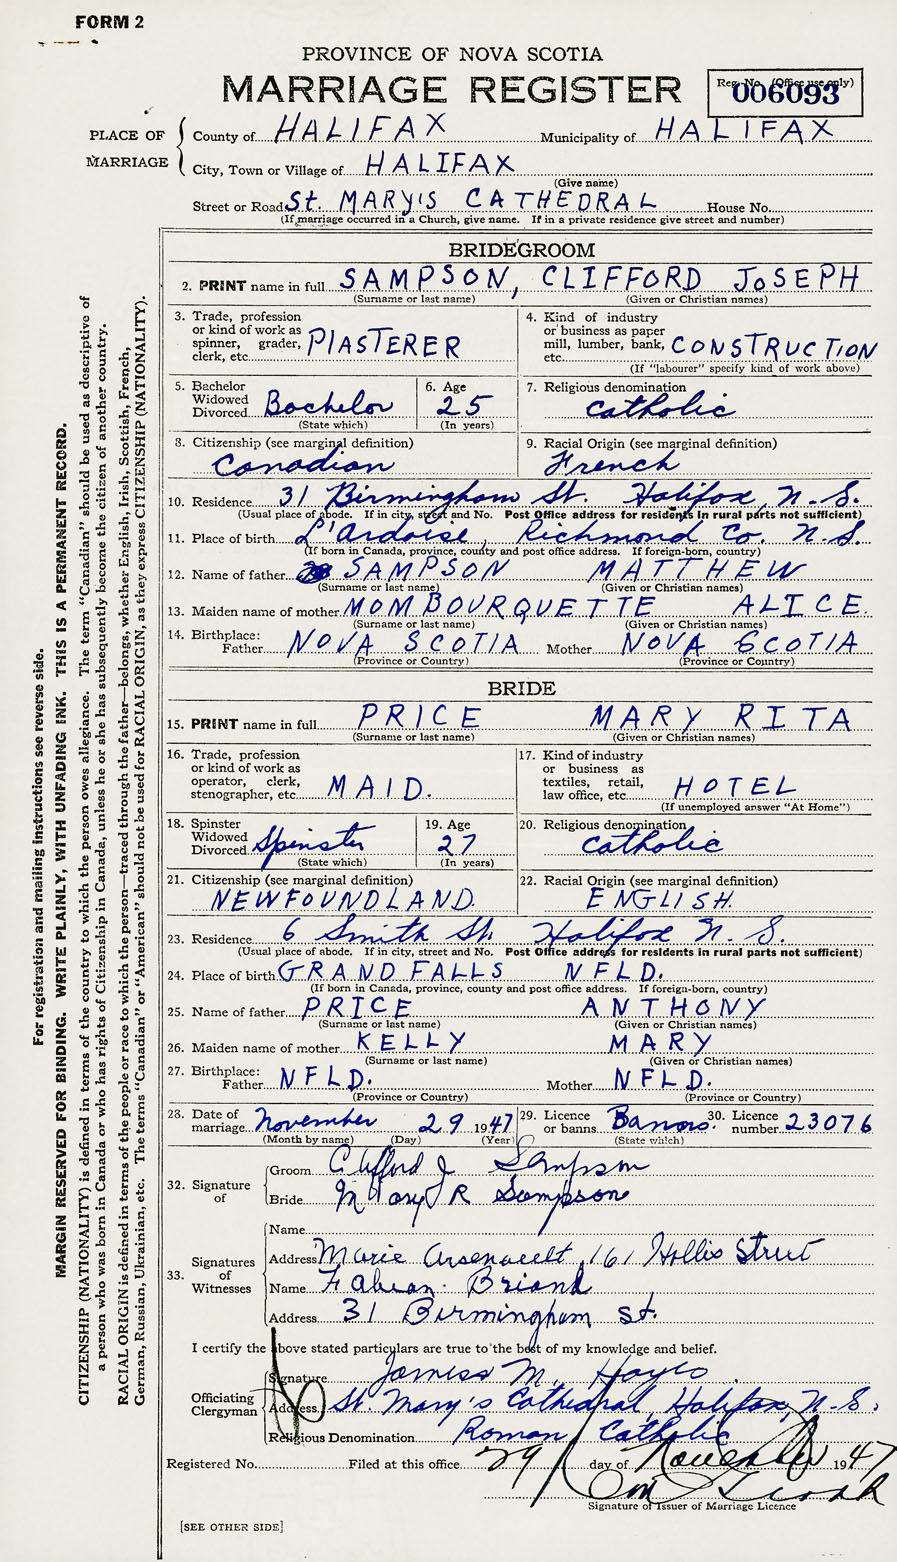 FORM 2
PROVINCE OF NOVA SCOTIA
MARRIAGE REGISTER
Reg. No. (Office use only)
006093
PLACE OF MARRIAGE
County of HALIFAX Municipality of HALIFAX
City, Town or Village of HALIFAX
(Give name)
Street or Road St. MARY'S CATHEDRAL House No.
(If marriage occurred in a Church, give name. If in a private residence give street and number)
BRIDEGROOM
2. PRINT name in full SAMPSON, CLIFFORD JOSEPH
(Surname or last name) (Given or Christian names)
3. Trade, profession
or kind of work as
spinner, grader,
clerk, etc. PLASTERER
4. Kind of industry
or business as paper
mill, lumber, bank,
etc. CONSTRUCTION
(If "labourer" specify kind of work above)
5. Bachelor
Widowed
Divorced Bachelor
(State which)
6. Age
25
(In years)
7. Religious denomination
Catholic
8. Citizenship (see marginal definition)
Canadian
9. Racial Origin (see marginal definition)
French
10. Residence 31 Birmingham St. Halifax, N.S.
(Usual place of abode. If in city, street and No. Post Office address for residents in rural parts not sufficient)
11. Place of birth L'Ardoise, Richmond Co. N.S.
(If born in Canada, province, county and post office address. If foreign-born, country)
12. Name of father SAMPSON MATTHEW
(Surname or last name) (Given or Christian names)
13. Maiden name of mother MOMBOURQUETTE ALICE.
(Surname or last name) (Given or Christian names)
14. Birthplace:
Father NOVA SCOTIA Mother NOVA SCOTIA
(Province or Country) (Province or Country)
BRIDE
15. PRINT name in full PRICE MARY RITA
(Surname or last name) (Given or Christian names)
16. Trade, profession
or kind of work as
operator, clerk,
stenographer, etc. MAID.
17. Kind of industry
or business as
textiles, retail,
law office, etc. HOTEL
(If unemployed answer "At Home")
18. Spinster
Widowed
Divorced Spinster
(State which)
19. Age
27
(In years)
20. Religious denomination
Catholic
21. Citizenship (see marginal definition)
NEWFOUNDLAND.
22. Racial Origin (see marginal definition)
ENGLISH.
23. Residence 6 Smith St. Halifax N.S.
(Usual place of abode. If in city, street and No. Post Office address for residents in rural parts not sufficient)
24. Place of birth GRAND FALLS NFLD.
(If born in Canada, province, county and post office address. If foreign-born, country)
25. Name of father PRICE ANTHONY
(Surname or last name) (Given or Christian names)
26. Maiden name of mother KELLY MARY
(Surname or last name) (Given or Christian names)
27. Birthplace:
Father NFLD. Mother NFLD.
(Province or Country) (Province or Country)
28. Date of
marriage November 29 1947
(Month by name) (Day) (Year)
29. Licence
or banns Banns.
(State which)
30. Licence
number 23076
32. Signature of
Groom Clifford J Sampson
Bride Mary R Sampson
33. Signatures of Witnesses
Name
Address Marie Arsenault, 161 Hollis Street
Name Fabian Briand
Address 31 Birmingham St.
I certify the above stated particulars are true to the best of my knowledge and belief.
Officiating Clergyman
Signature James M. Hayes
Address St. Mary's Cathedral, Halifax, N.S.
Religious Denomination Roman Catholic
Registered No. Filed at this office 29 day of November 1947
Signature of Issuer of Marriage Licence
[SEE OTHER SIDE]
For registration and mailing instructions see reverse side.
MARGIN RESERVED FOR BINDING. WRITE PLAINLY, WITH UNFADING INK. THIS IS A PERMANENT RECORD.
CITIZENSHIP (NATIONALITY) is defined in terms of the country to which the person owes allegiance. The term "Canadian" should be used as descriptive of
a person who was born in Canada or who has rights of Citizenship in Canada, unless he or she has subsequently become the citizen of another country.
RACIAL ORIGIN is defined in terms of the people or race to which the person—traced through the father—belongs, whether English, Irish, Scottish, French,
German, Russian, Ukrainian, etc. The terms "Canadian" or "American" should not be used for RACIAL ORIGIN, as they express CITIZENSHIP (NATIONALITY).